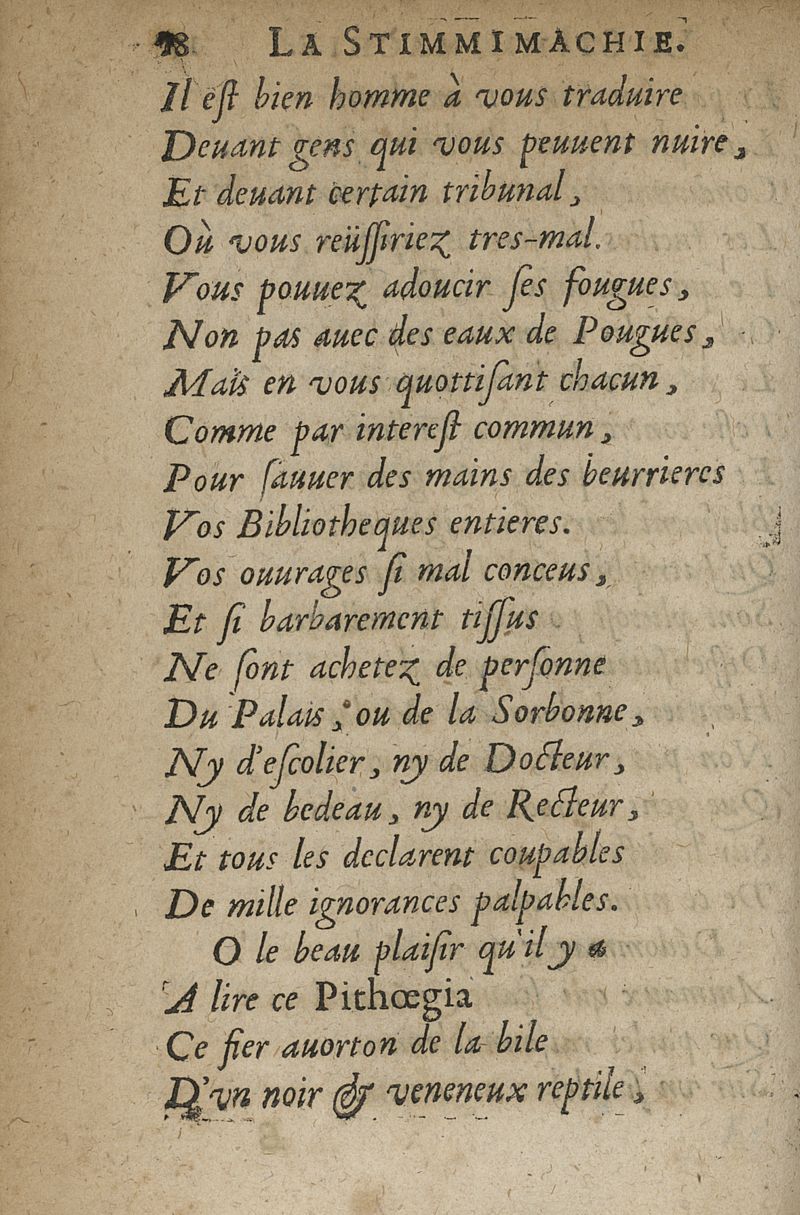 98 LA STIMMIMACHIE.
Il eſt bien homme à vous traduire
Deuant gens qui vous peuuent nuire,
Et deuant certain tribunal,
Où vous reüſſiriez tres-mal.
Vous pouuez adoucir ſes fougues,
Non pas auec des eaux de Pougues,
Mais en vous quottiſant chacun,
Comme par intereſt commun,
Pour ſauuer des mains des beurrieres
Vos Bibliotheques entieres.
Vos ouurages ſi mal conceus,
Et ſi barbarement tiſſus
Ne ſont achetez de perſonne
Du Palais, ou de la Sorbonne,
Ny d'eſcolier, ny de Docteur,
Ny de bedeau, ny de Recteur,
Et tous les declarent coupables
De mille ignorances palpables.
O le beau plaiſir qu'il y a
A lire ce Pithœgia
Ce fier auorton de la bile
D'vn noir & veneneux reptile,